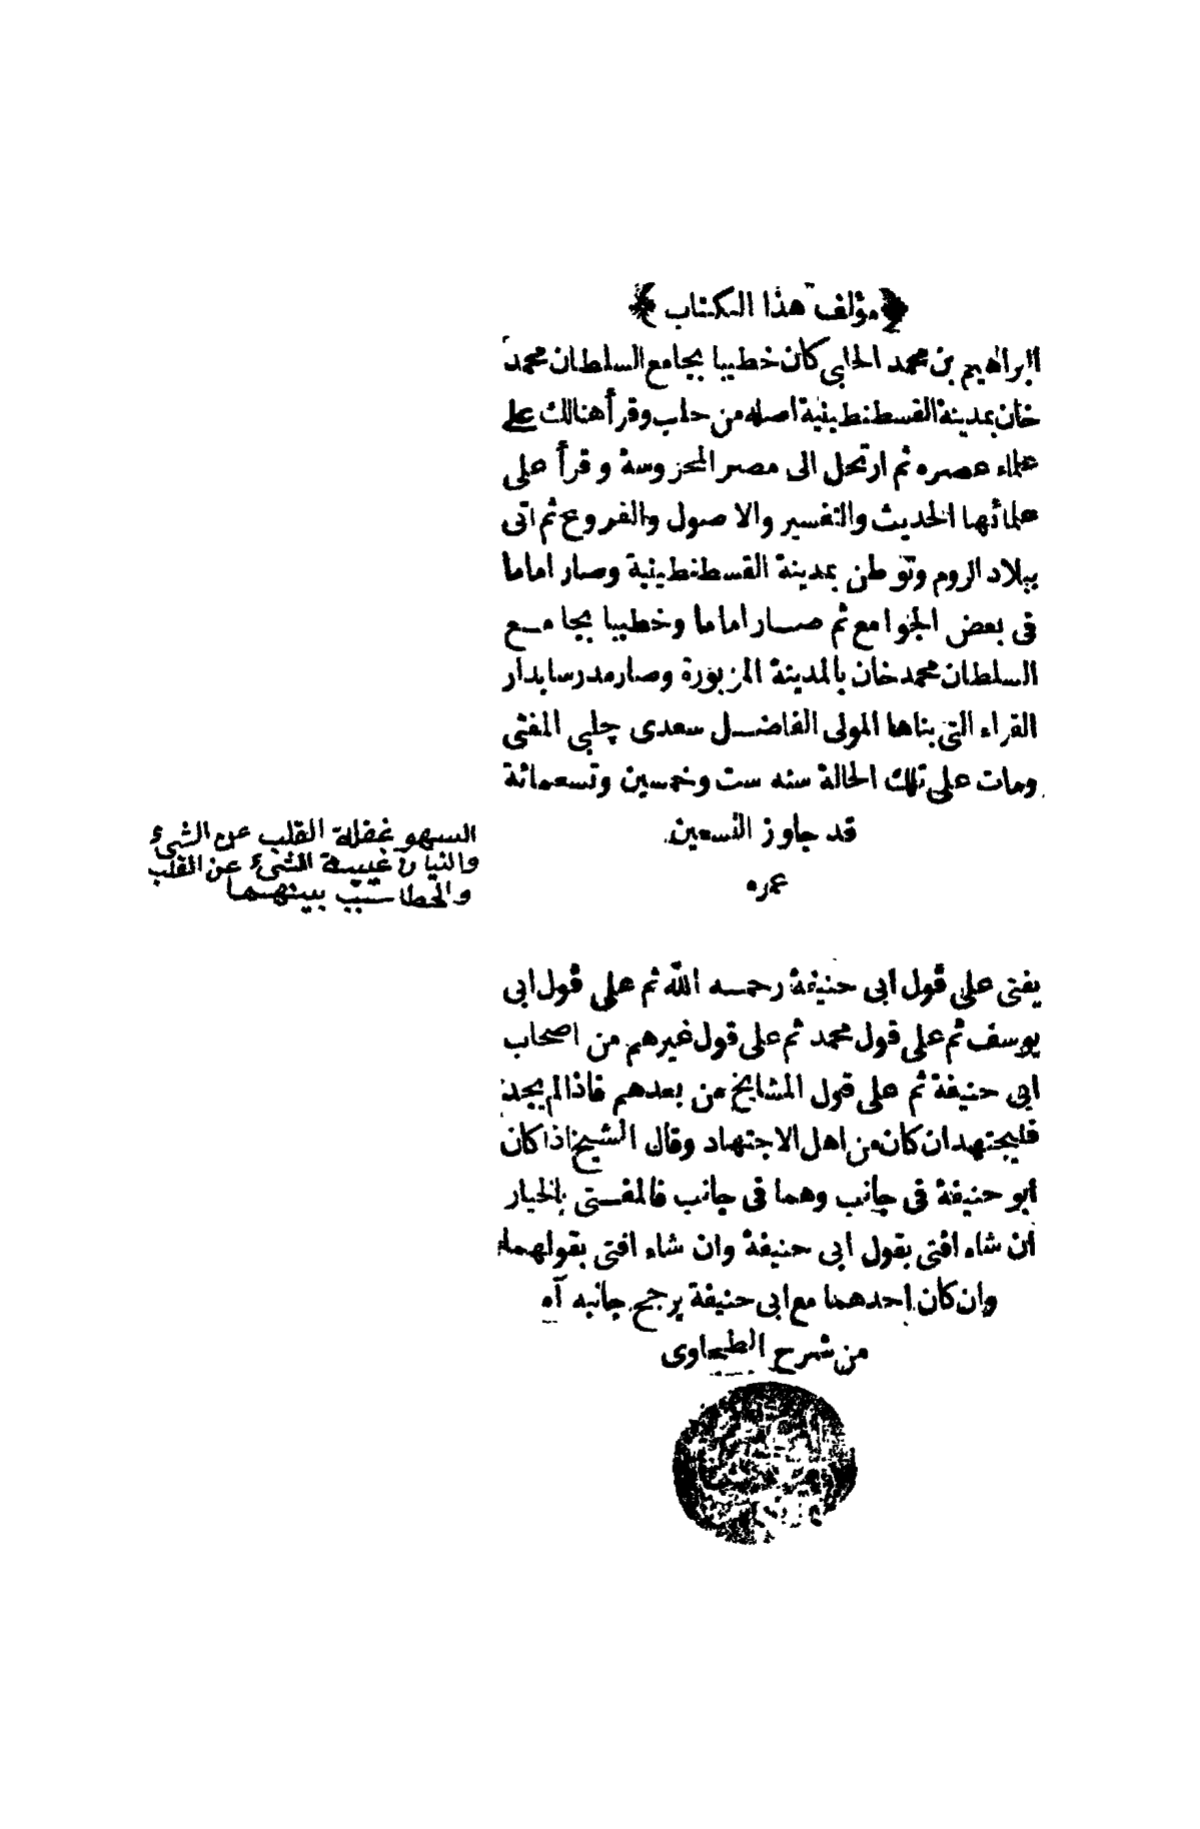 ﴿ مؤلف هذا الكتاب ﴾
ابراهيم بن محمد الحلبى كان خطيبا بجامع السلطان محمد
خان بمدينة القسطنطينية اصله من حلب وقرأ هنالك على
علماء عصره ثم ارتحل الى مصر المحروسة وقرأ على
علمائها الحديث والتفسير والاصول والفروع ثم اتى
ببلاد الروم وتوطن بمدينة القسطنطينية وصار اماما
فى بعض الجوامع ثم صار اماما وخطيبا بجامع
السلطان محمد خان بالمدينة المزبورة وصار مدرسا بدار
القراء التى بناها المولى الفاضل سعدى چلبى المفتى
ومات على تلك الحالة سنه ست وخمسين وتسعمائة
قد جاوز التسعين
عمره
السهو غفلة القلب عن الشئ
والنيان غيبية الشئ عن القلب
والخطا سبب بينهما
يفتى على قول ابى حنيفة رحمه الله ثم على قول ابى
يوسف ثم على قول محمد ثم على قول غيرهم من اصحاب
ابى حنيفة ثم على قول المشايخ من بعدهم فاذا لم يجد
فليجتهد ان كان من اهل الاجتهاد وقال الشيخ اذا كان
أبو حنيفة فى جانب وهما فى جانب فالمفتى بالخيار
ان شاء افتى بقول ابى حنيفة وان شاء افتى بقولهما
وان كان احدهما مع ابى حنيفة يرجح جانبه آه
من شرح الطحاوى